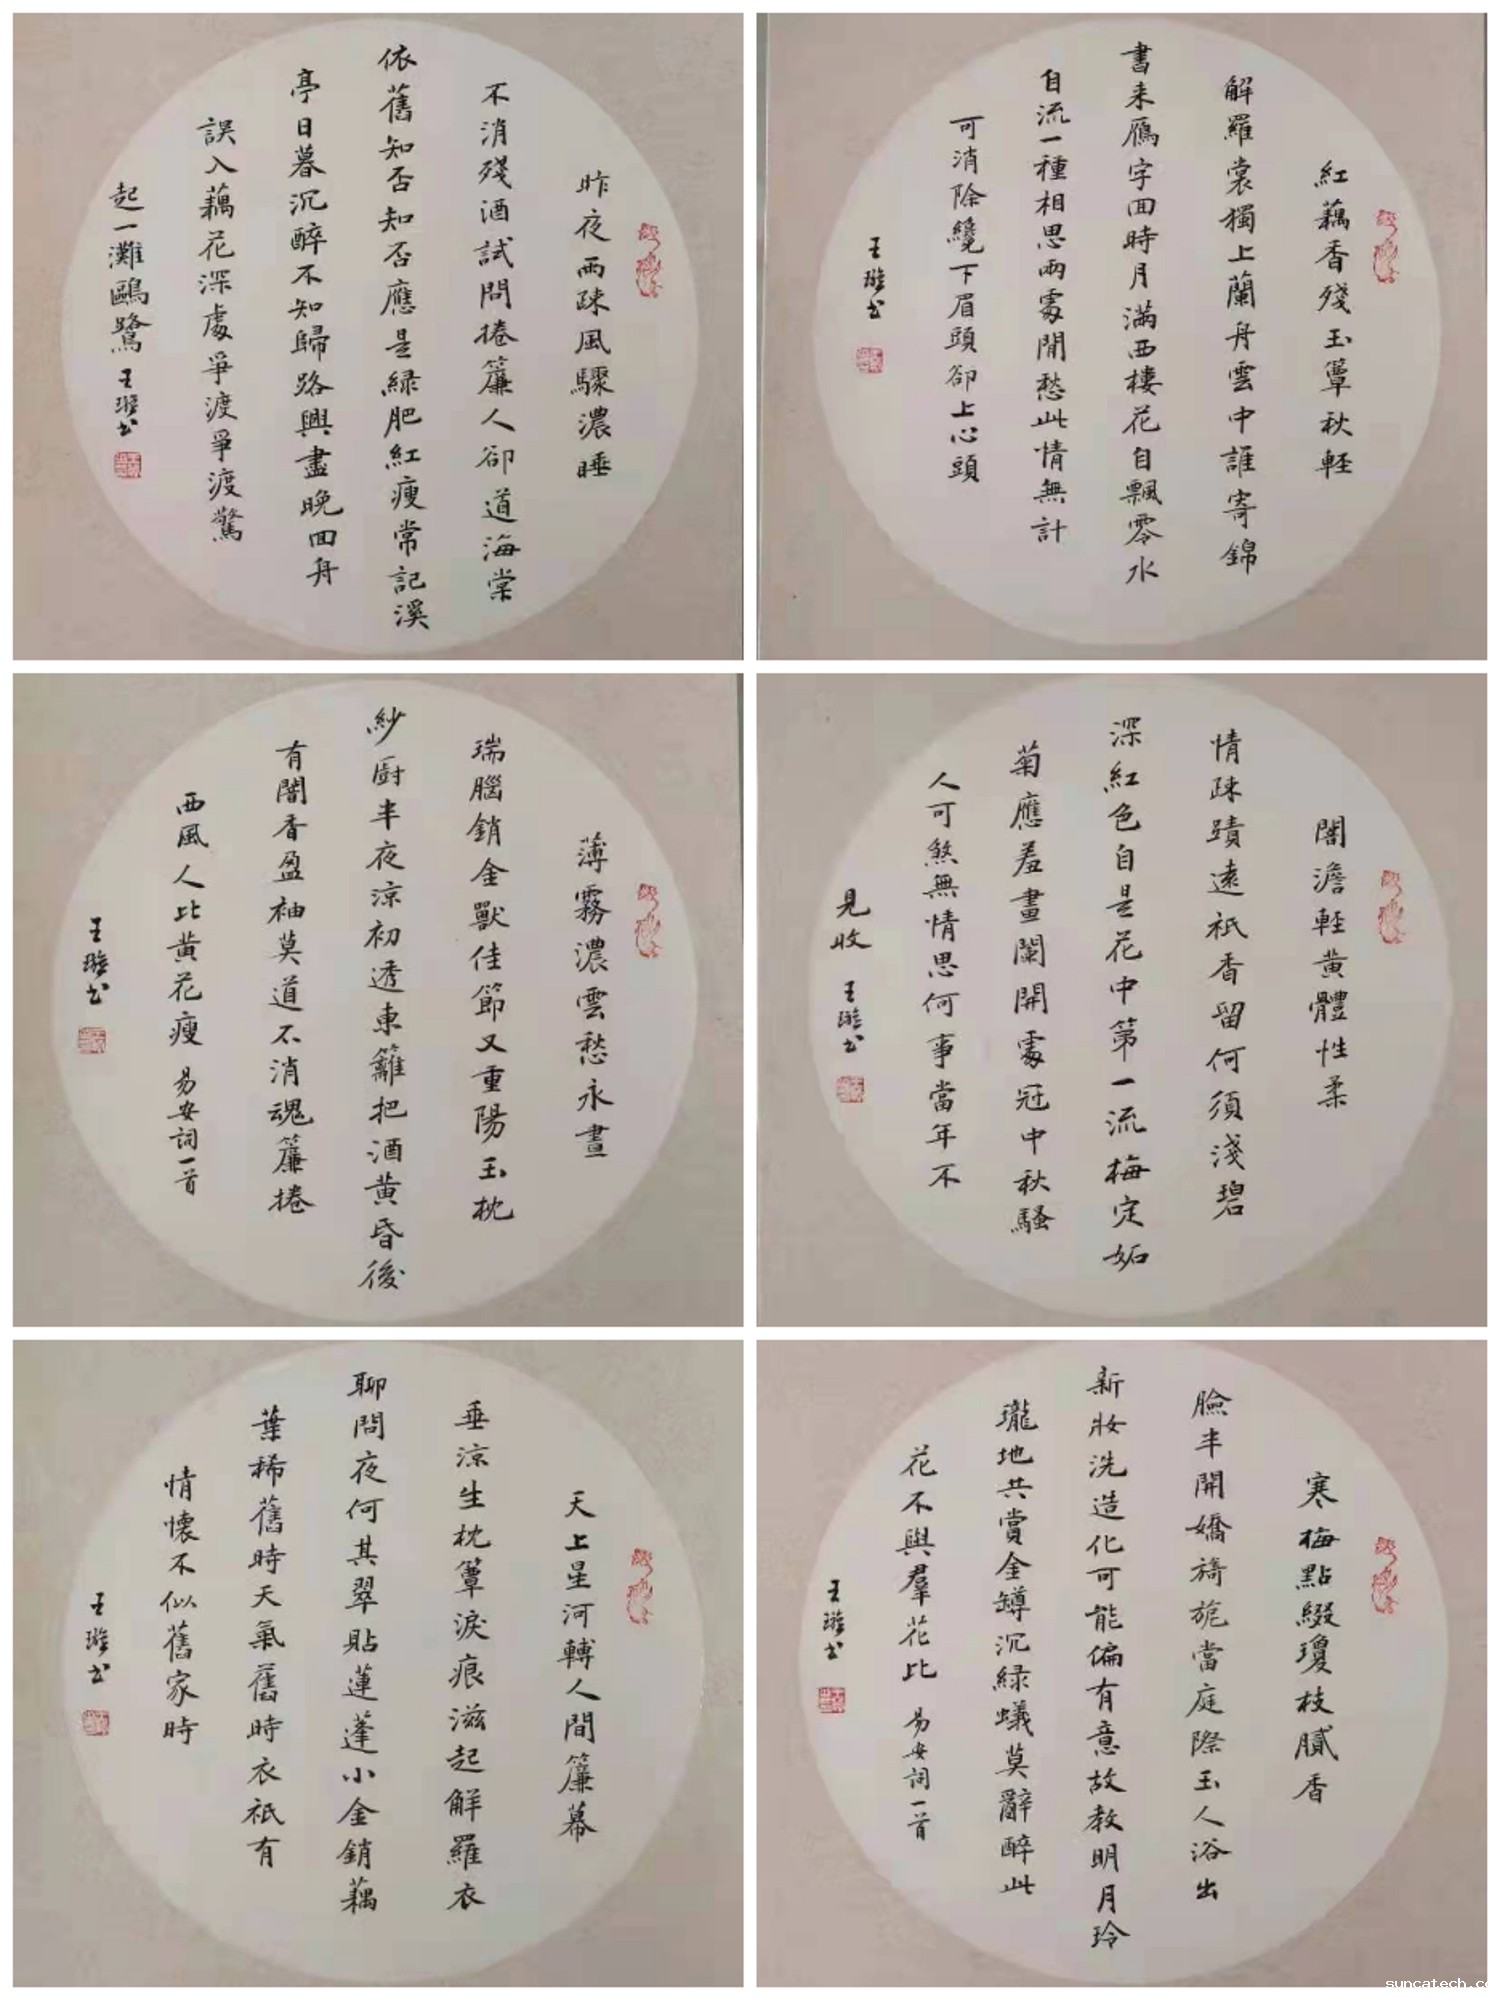 昨夜雨疎風驟濃睡
不消殘酒試問捲簾人卻道海棠
依舊知否知否應是綠肥紅瘦常記溪
亭日暮沉醉不知歸路興盡晚回舟
誤入藕花深處爭渡爭渡驚
起一灘鷗鷺 王璇书
紅藕香殘玉簟秋輕
解羅裳獨上蘭舟雲中誰寄錦
書来雁字回時月满西樓花自飄零水
自流一種相思兩處閒愁此情無計
可消除纔下眉頭卻上心頭
王璇书
薄霧濃雲愁永晝
瑞腦銷金獸佳節又重陽玉枕
紗厨半夜涼初透東籬把酒黄昏後
有闇香盈袖莫道不消魂簾捲
西風人比黄花瘦 易安詞一首
王璇书
闇澹輕黄體性柔
情疎蹟遠衹香留何須淺碧
深紅色自是花中第一流梅定妬
菊應羞畫闌開處冠中秋騷
人可煞無情思何事當年不
見收 王璇书
天上星河轉人間簾幕
垂涼生枕簟淚痕滋起解羅衣
聊問夜何其翠貼蓮蓬小金銷藕
葉稀舊時天氣舊時衣衹有
情懷不似舊家時
王璇书
寒梅點綴瓊枝膩香
臉半開嬌旖旎當庭際玉人浴出
新妝洗造化可能偏有意故教明月玲
瓏地共賞金罇沉綠蟻莫辭醉此
花不與羣花比 易安詞一首
王璇书
suncatech.co